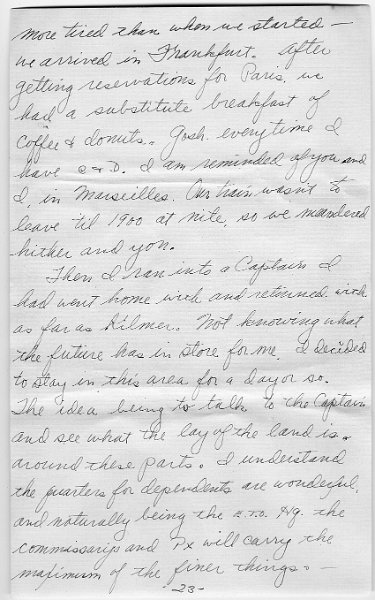 more tired than when we started —
we arrived in Frankfurt. After
getting reservations for Paris, we
had a substitute breakfast of
coffee & donuts. Gosh everytime I
have C & D. I am reminded of you and
I, in Marseilles. Our train wasn't to
leave til 1900 at nite, so we meandered
hither and yon.
Then I ran into a Captain I
had went home with and returned with
as far as Kilmer. Not knowing what
the future has in store for me, I decided
to stay in this area for a day or so.
The idea being to talk to the Captain
and see what the lay of the land is
around these parts. I understand
the quarters for dependents are wonderful,
and naturally being the E.T.O. Hq. the
commissarys and Px will carry the
maximum of the finer things. —
-23-